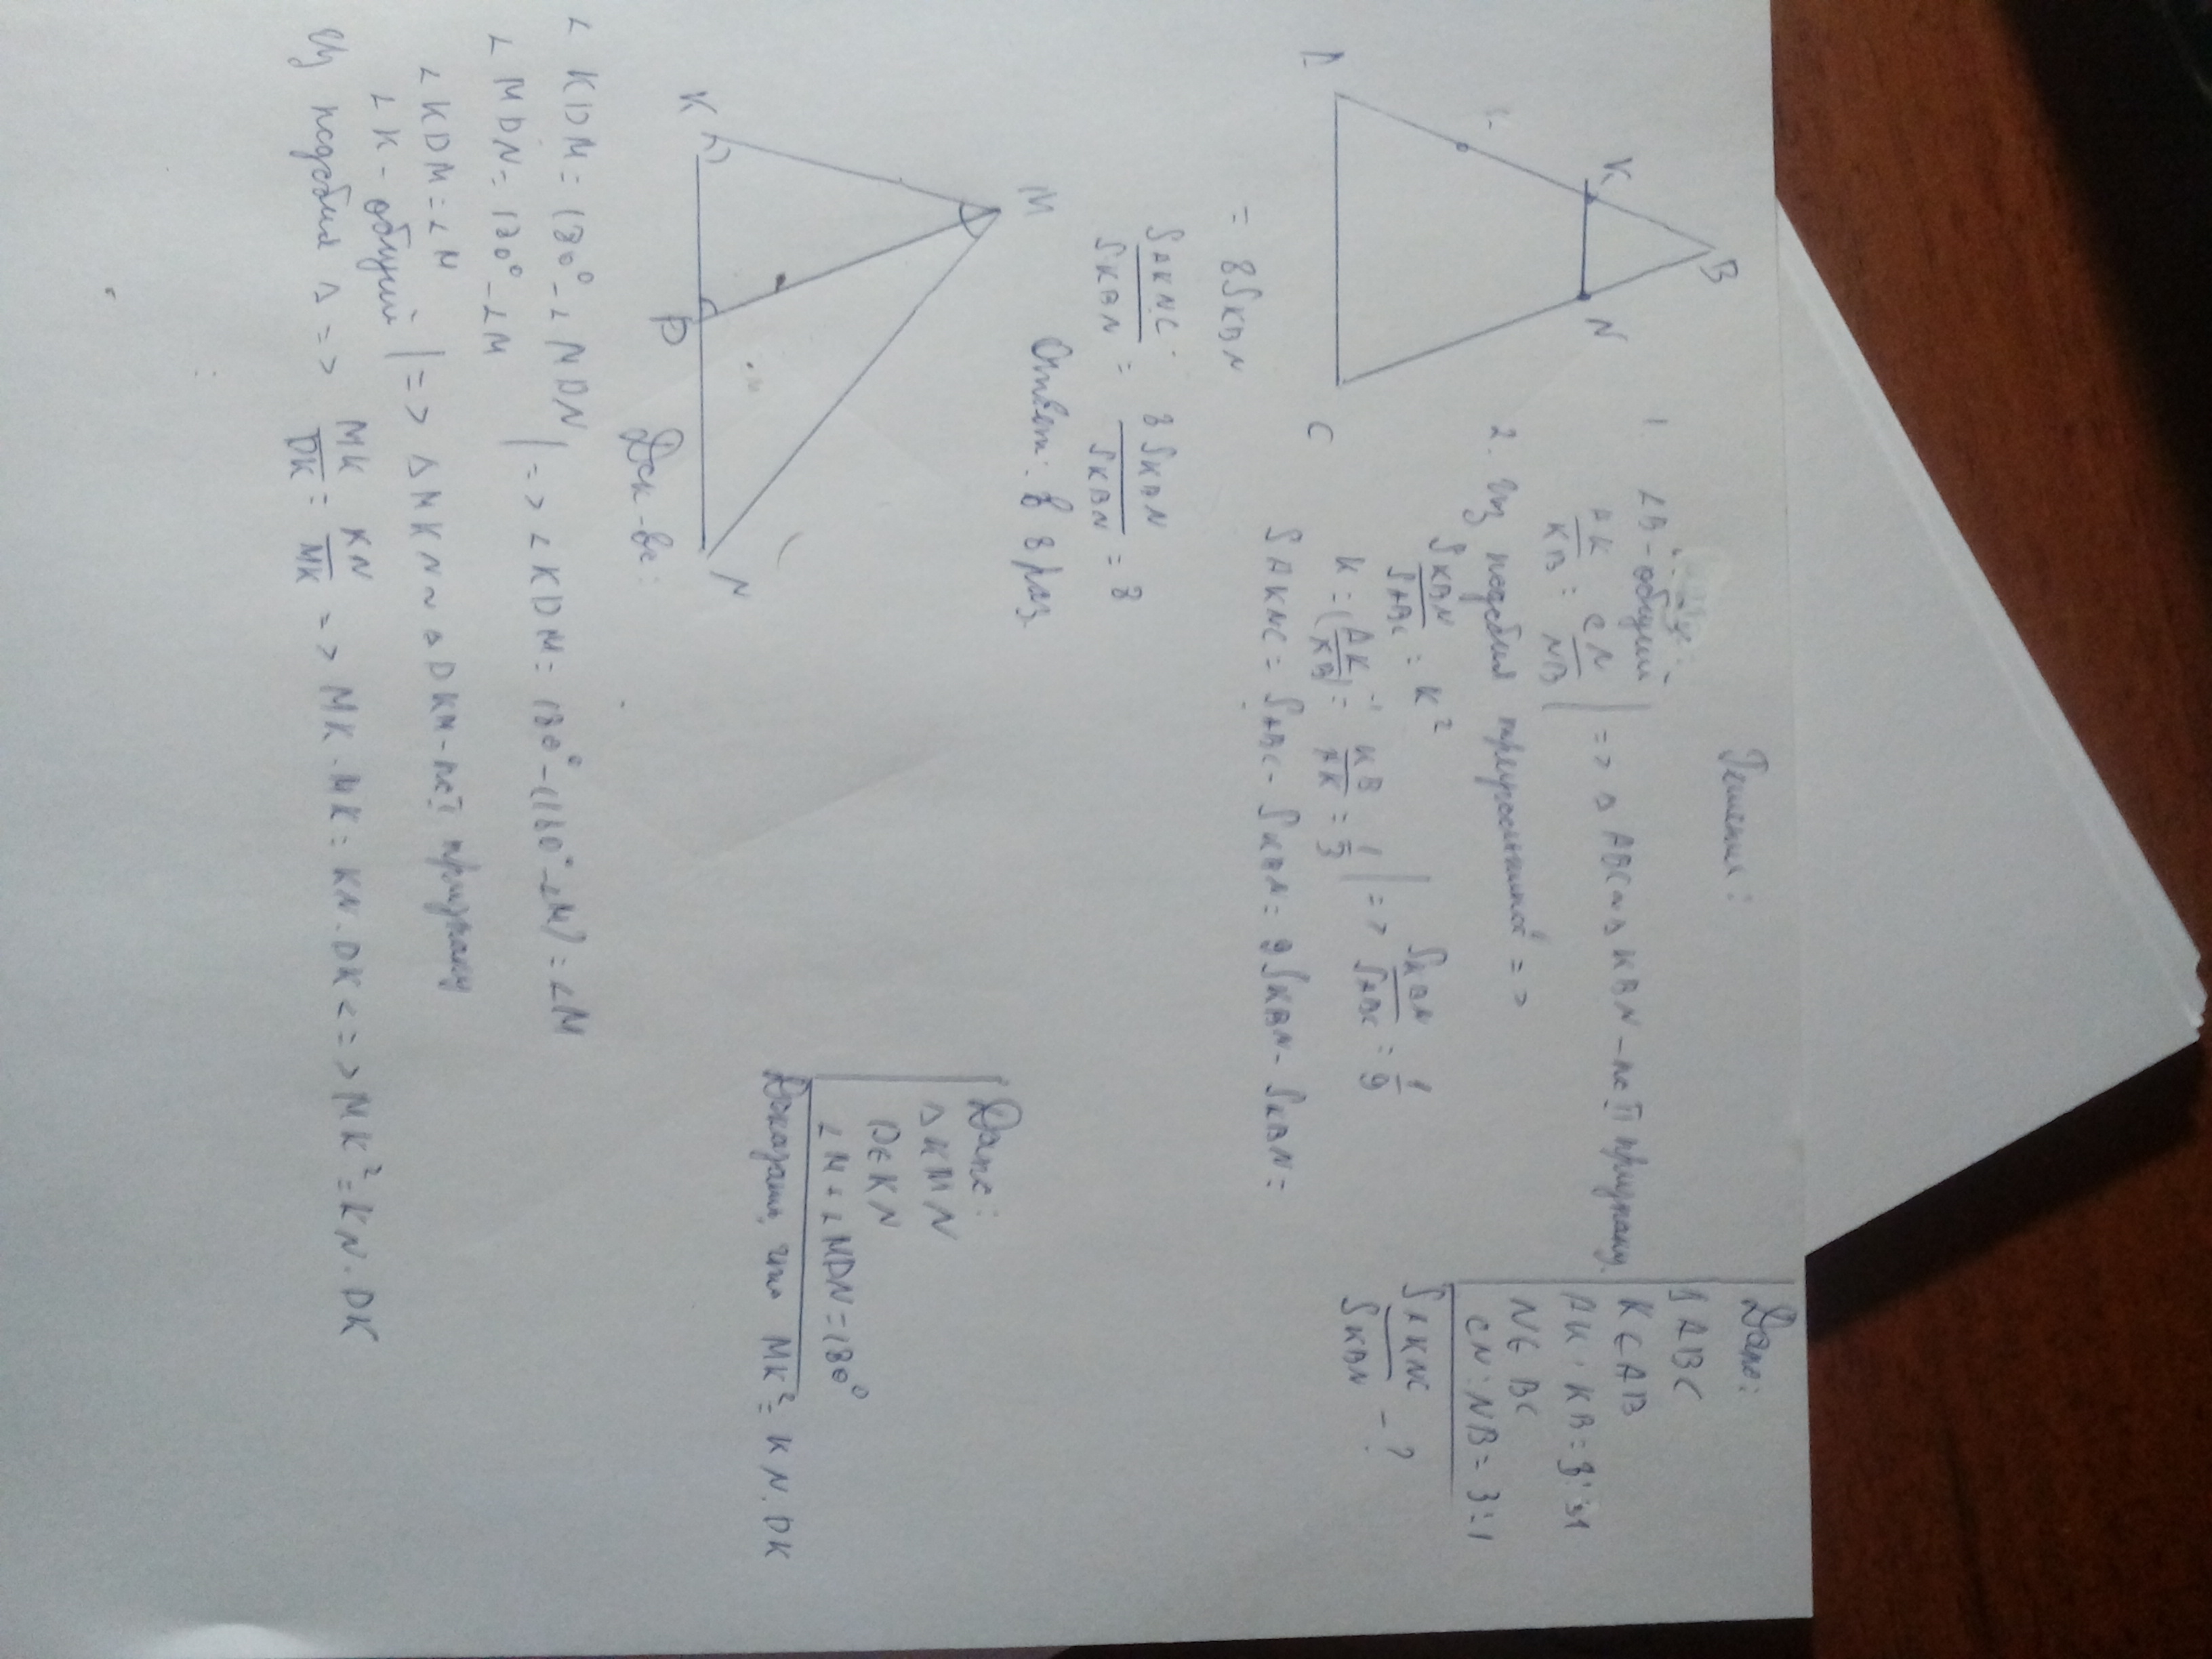 Дано:
Δ ABC
K ∈ AB
AK : KB = 3:1
N ∈ BC
CN : NB = 3:1
SAKNC / SKBN - ?
Решение:
B
K
N
A
C
1. ∠B - общий
AK / KB = CN / NB | => Δ ABC ~ Δ KBN - по II признаку.
2. Из подобия треугольников =>
SKBN / SABC = K²
K = (AK / KB)⁻¹ = KB / AK = 1 / 3 | => SKBN / SABC = 1 / 9
SAKNC = SABC - SKBN = 9SKBN - SKBN =
= 8SKBN
SAKNC / SKBN = 8SKBN / SKBN = 8
Ответ: в 8 раз.
Дано:
Δ KMN
D ∈ KN
∠M + ∠MDN = 180°
Доказать, что MK² = KN · DK
M
K
D
N
Док-во:
∠KDM = 180° - ∠MDN
∠MDN = 180° - ∠M | => ∠KDM = 180° - (180° - ∠M) = ∠M
∠KDM = ∠M
∠K - общий | => Δ MKN ~ Δ DKM - по I признаку
Из подобия Δ => MK / DK = KN / MK => MK · MK = KN · DK <=> MK² = KN · DK